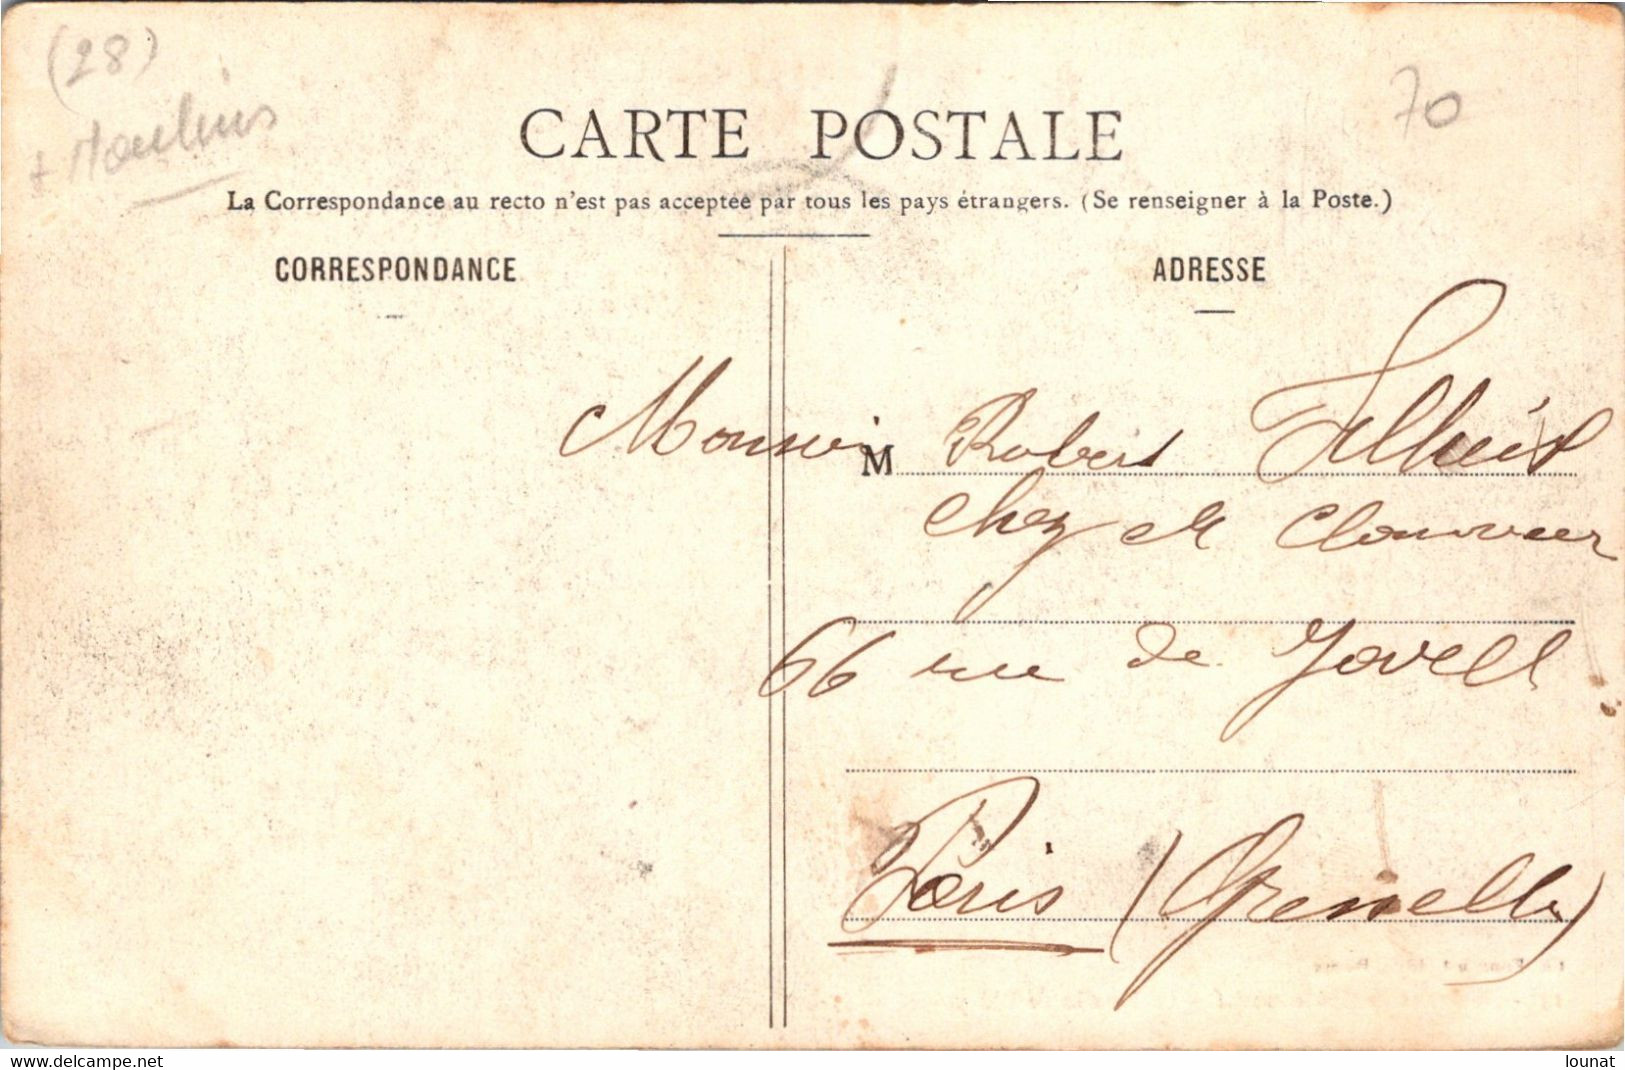 (28)
+ Moulins
70
CARTE POSTALE
La Correspondance au recto n'est pas acceptée par tous les pays étrangers. (Se renseigner à la Poste.)
CORRESPONDANCE
ADRESSE
Monsieur M Robert
chez M
66 rue de Javell
Paris (Grenelle)
www.delcampe.net
lounat